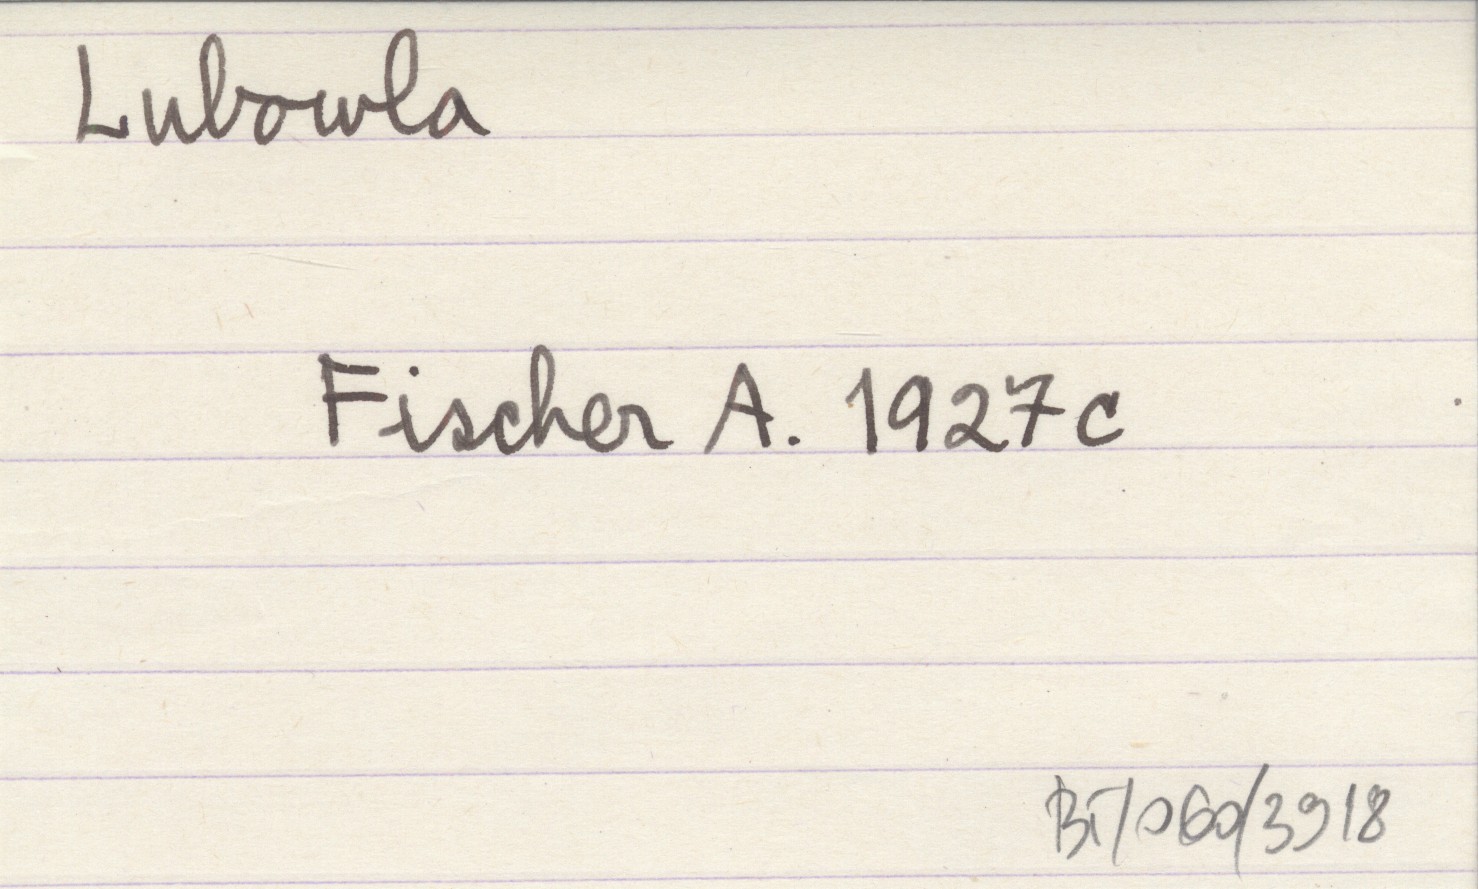 Lubowla
Fischer A. 1927c
BT/060/3918